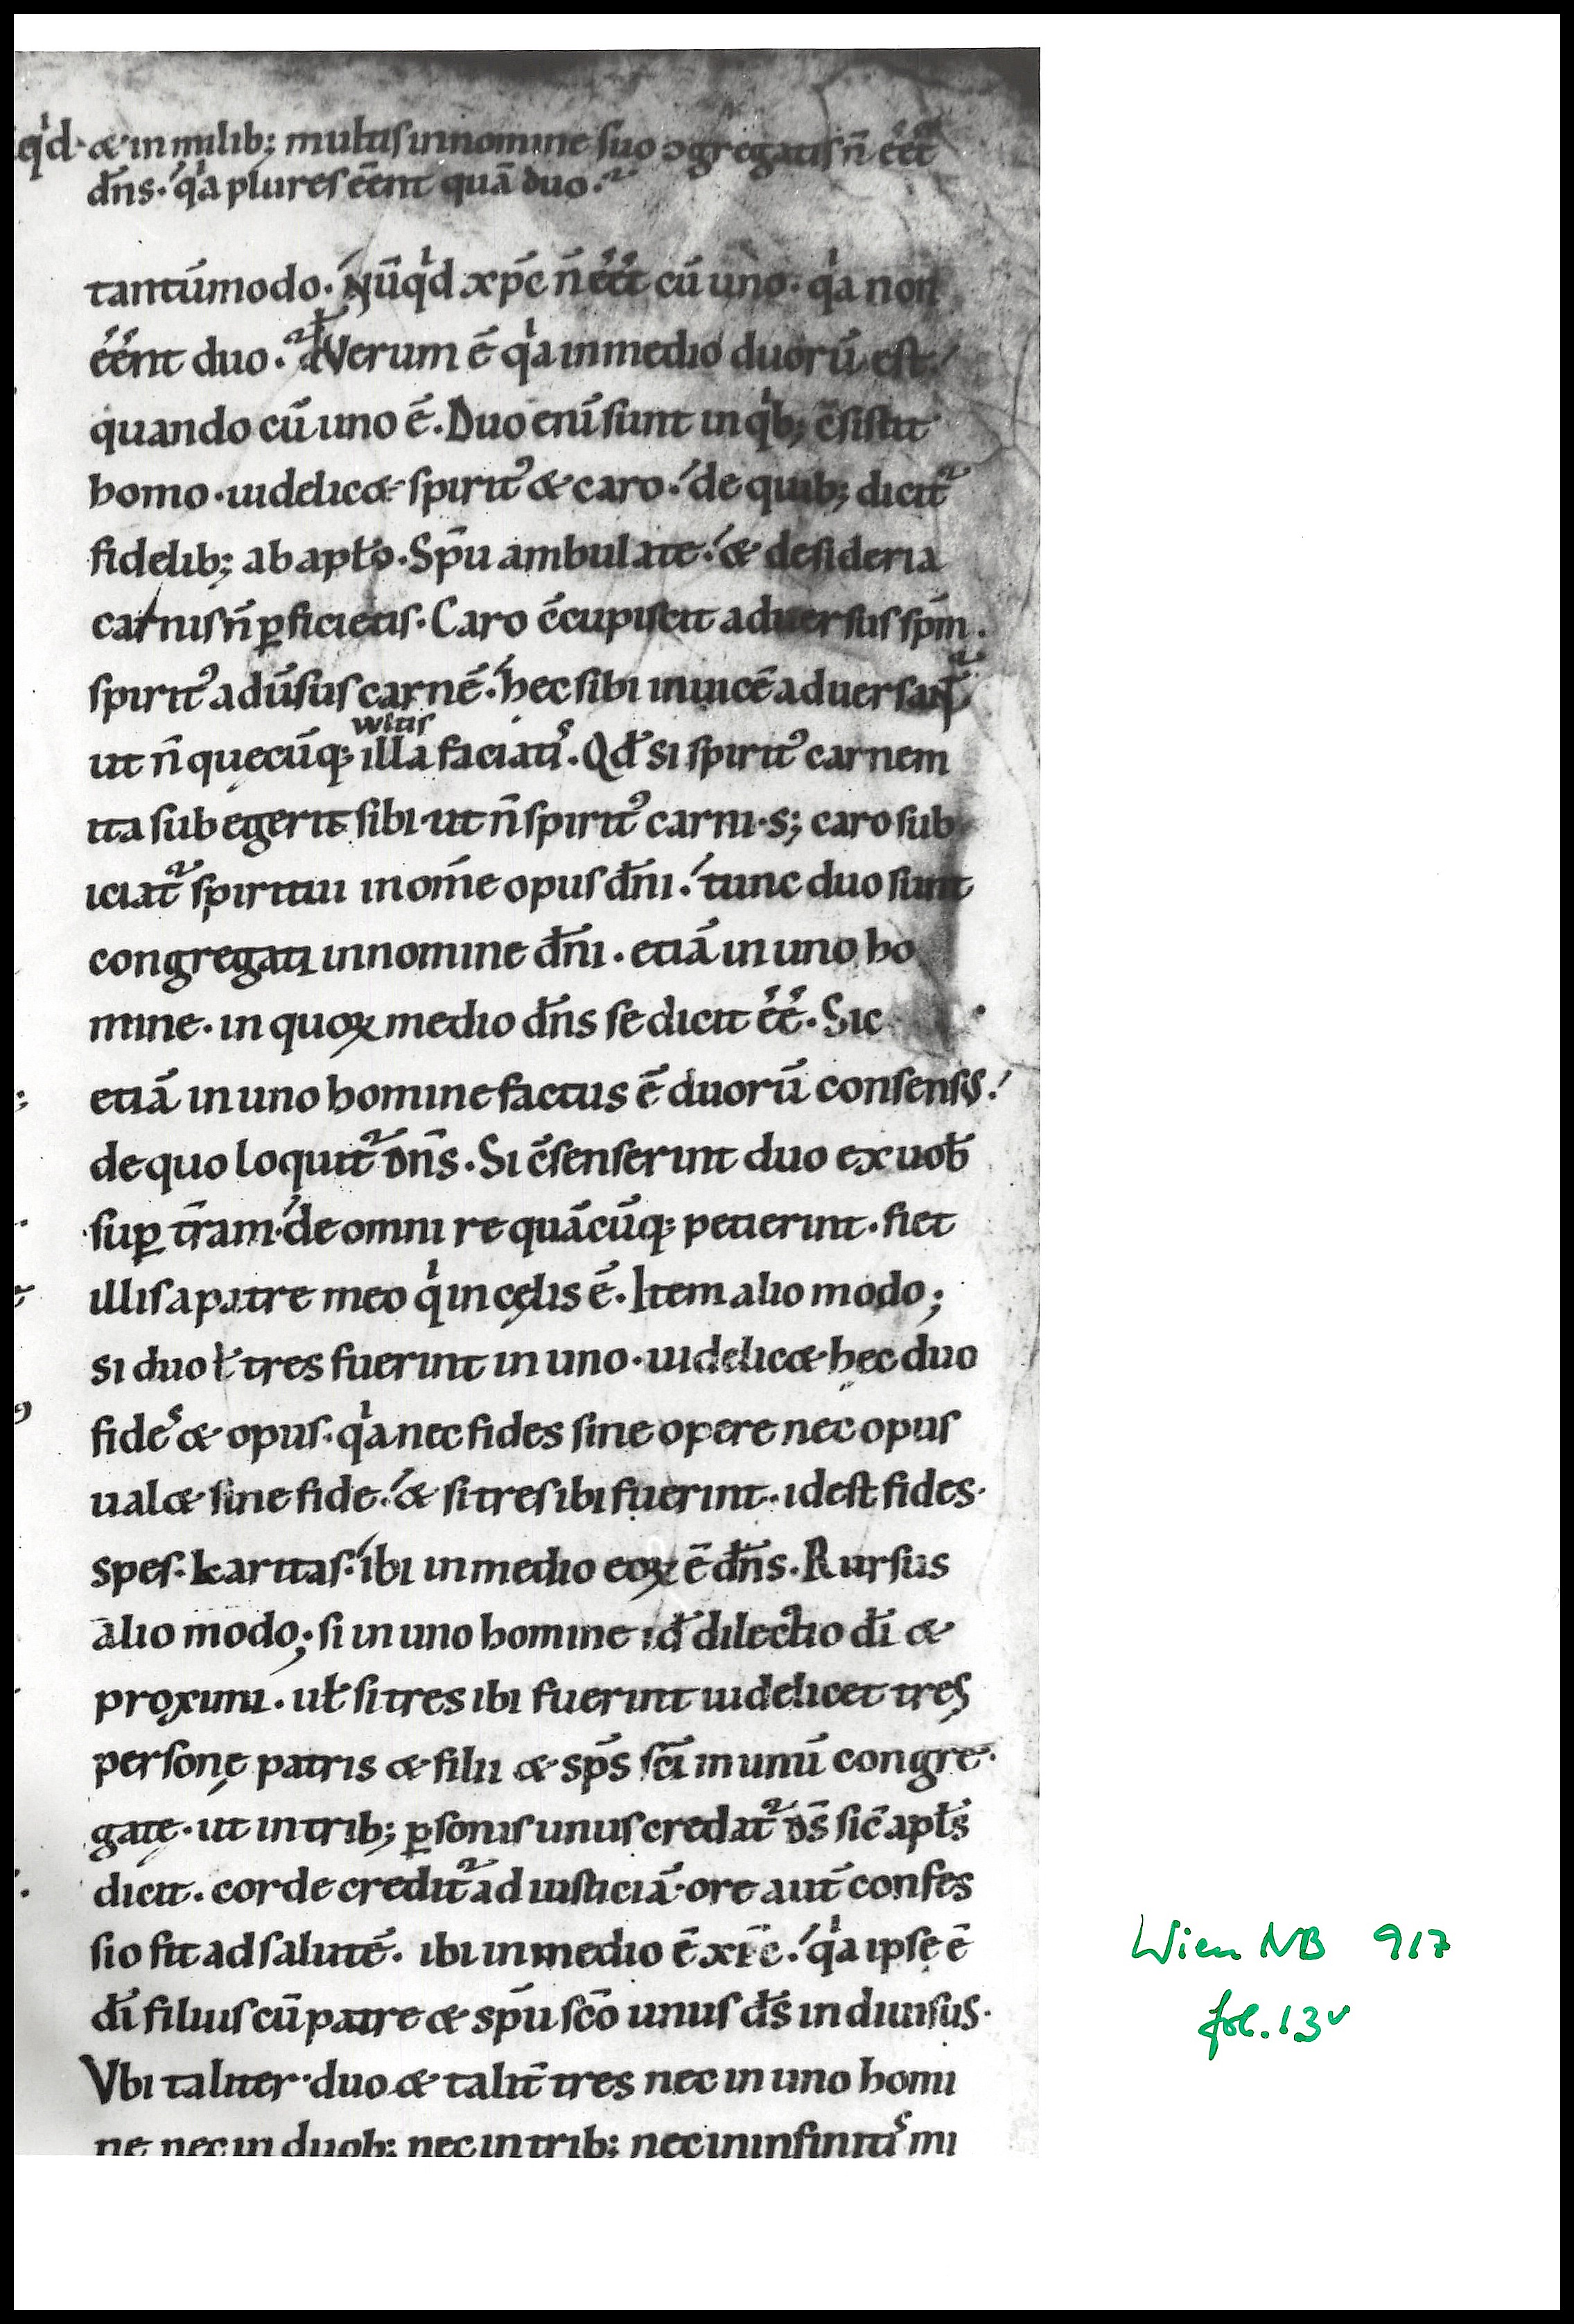 eq̍d· & in milib; multis in nomine suo ɔgregatis n̄ éét
dn̄s·' q̍a plures éent quā duo.
tantúmodo·' Nūq̍d xp̄c n̄ éét cú uno· q̍a non
éént duo. Verum ē q̍a in medio duorū est·'
quando cū uno ē. Duo enī sunt in q̍b; c̄sistit
homo· uidelic& spirit᷒ & caro·' de quib; dicit᷑
fidelib; ab apl̄o. Sp̄u ambulate·' & desideria
carnis n̄ ꝑficietis. Caro c̄cupiscit aduersus sp̄m.
spirit᷒ adūsus carnē·' hec sibi inuicē aduersant᷑
ut n̄ quecūq; illa faciatis. Qd̄ si spirit᷒ carnem
uultis
ita subegerit sibi· ut n̄ spirit᷒ carni· s; caro sub
iciat᷑ spiritui in om̄e opus dn̄i·' tunc duo sunt
congregati in nomine dn̄i· etiā in uno ho
mine· in quoꝝ medio dn̄s se dicit éé. Sic
etiā in uno homine factus ē duorū consensus·'
de quo loquit᷑ dn̄s. Si c̄senserint duo ex uob̄
suꝑ tr̄am·' de omni re quācūq; petierint· fiet
illis a patre meo q̍ in cęlis ē. Item alio modo;
si duo ł tres fuerint in uno· uidelic& hęc duo
fides & opus· q̍a nec fides sine opere nec opus
ual& sine fide·' & si tres ibi fuerint· id est fides·
spes· karitas·' ibi in medio eoꝝ ē dn̄s. Rursus
alio modo; si in uno homine id̄ dilectio dī &
proximi· uł si tres ibi fuerint uidelicet tres
personę patris & filii & sp̄s sc̄i in unū congre·
gatę· ut in trib; ꝑsonis unus credat᷑ ds̄ sic̄ apl̄s
dicit· corde credit᷑ ad iusticiā· ore aut̄ confes
sio fit ad salutē. ibi in medio ē xp̄c·' q̍a ipse ē
dī filius cū patre & sp̄u sc̄o unus ds̄ indiuisus·
Vbi taliter duo & talit̄ tres nec in uno homi
ne nec in duob; nec in trib; nec in infinitis mi
Wien NB 917
fol. 13v